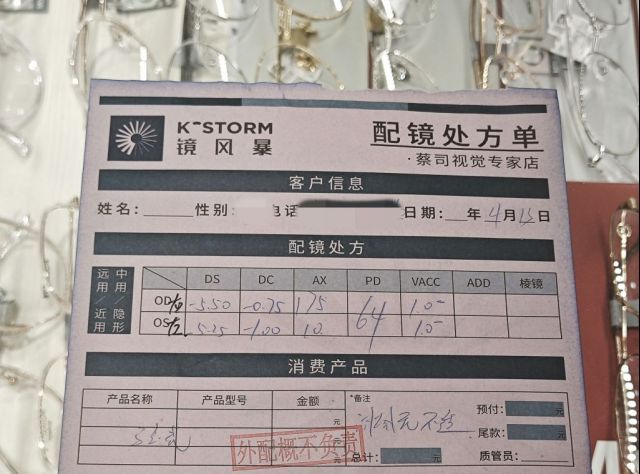 K·STORM
镜风暴
配镜处方单
·蔡司视觉专家店
客户信息
姓名: 性别 电话 日期: 年 4月 日
配镜处方
远用/近用 中用/隐形
DS DC AX PD VACC ADD 棱镜
OD右 -5.50 -0.75 175 64 1.0
OS左 5.25 -1.00 10 1.0
消费产品
产品名称 产品型号 金额 *备注
元 预付: 元
元 尾款: 元
元 总计: 元 质管员:
外配概不负责